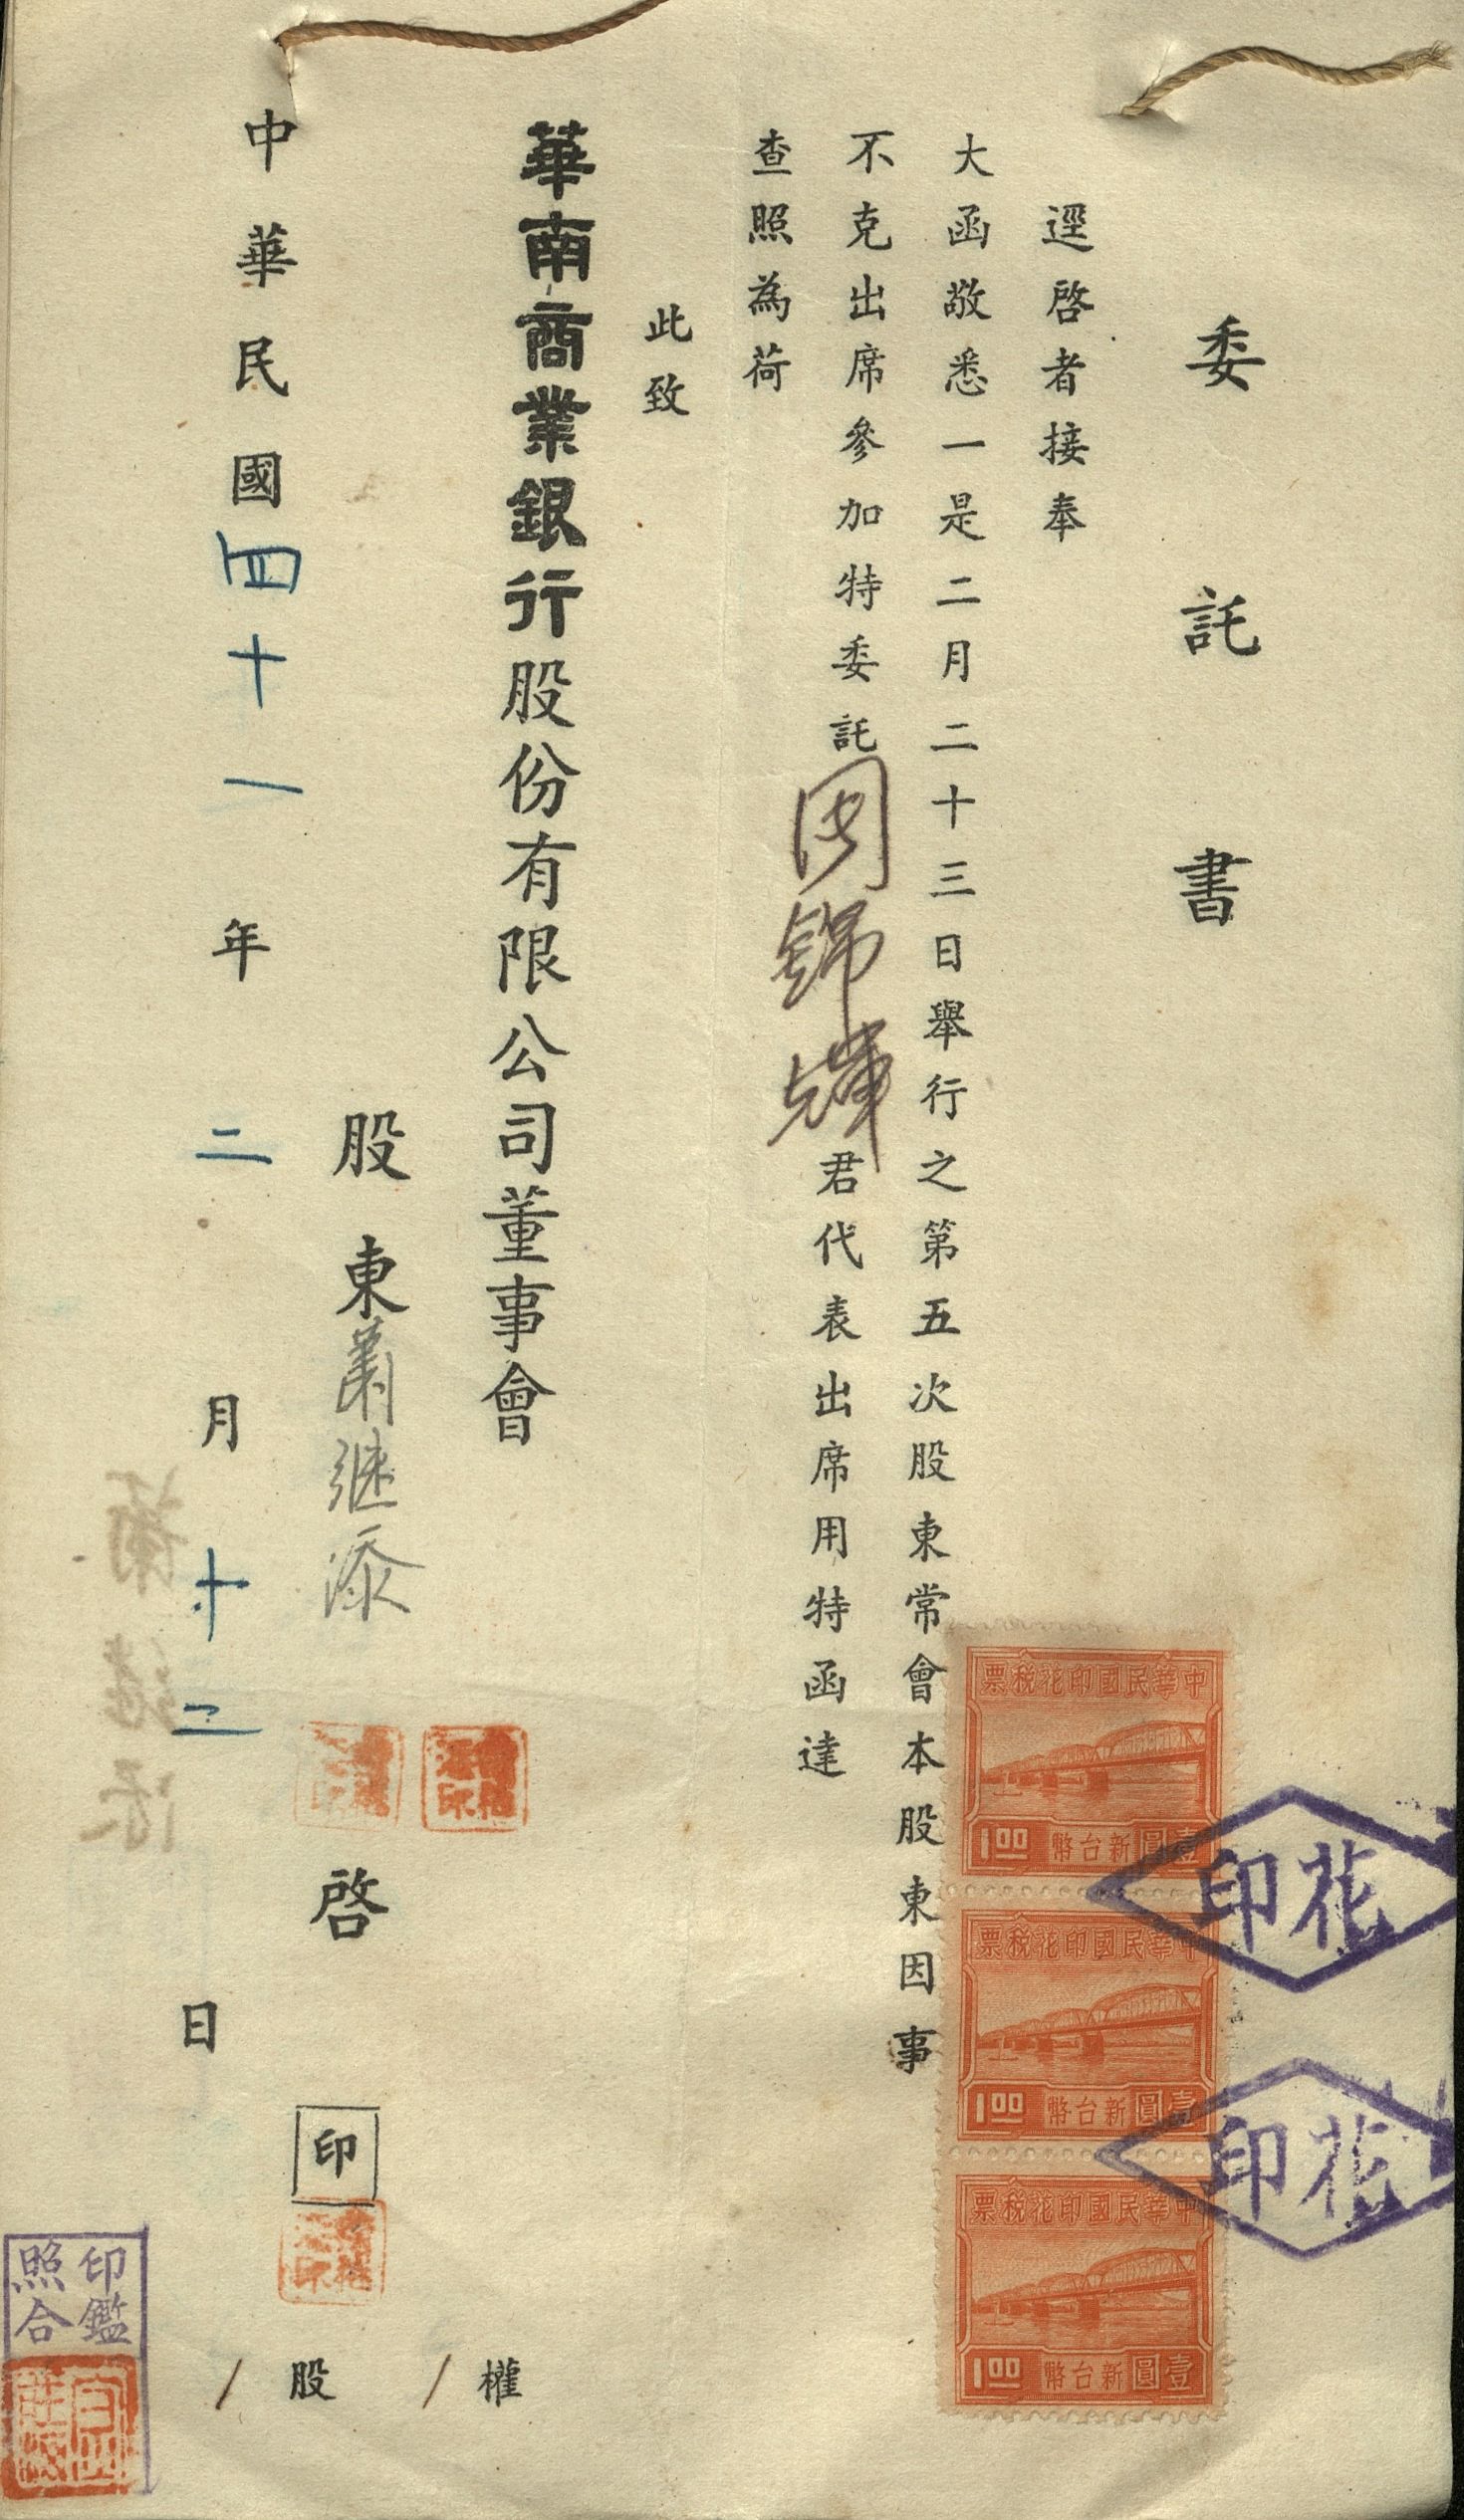 委託書
逕啓者接奉
大函敬悉一是二月二十三日舉行之第五次股東常會本股東因事
不克出席參加特委託周錦輝君代表出席用特函達
查照為荷
此致
華南商業銀行股份有限公司董事會
股東蕭継添啓印
權
1
股
1
中華民國四十一年二月十二日
票稅花印國民華中
1.00 幣台新圓壹
票稅花印國民華中
1.00 幣台新圓壹
票稅花印國民華中
1.00 幣台新圓壹
印花
印花
印鑑
照合